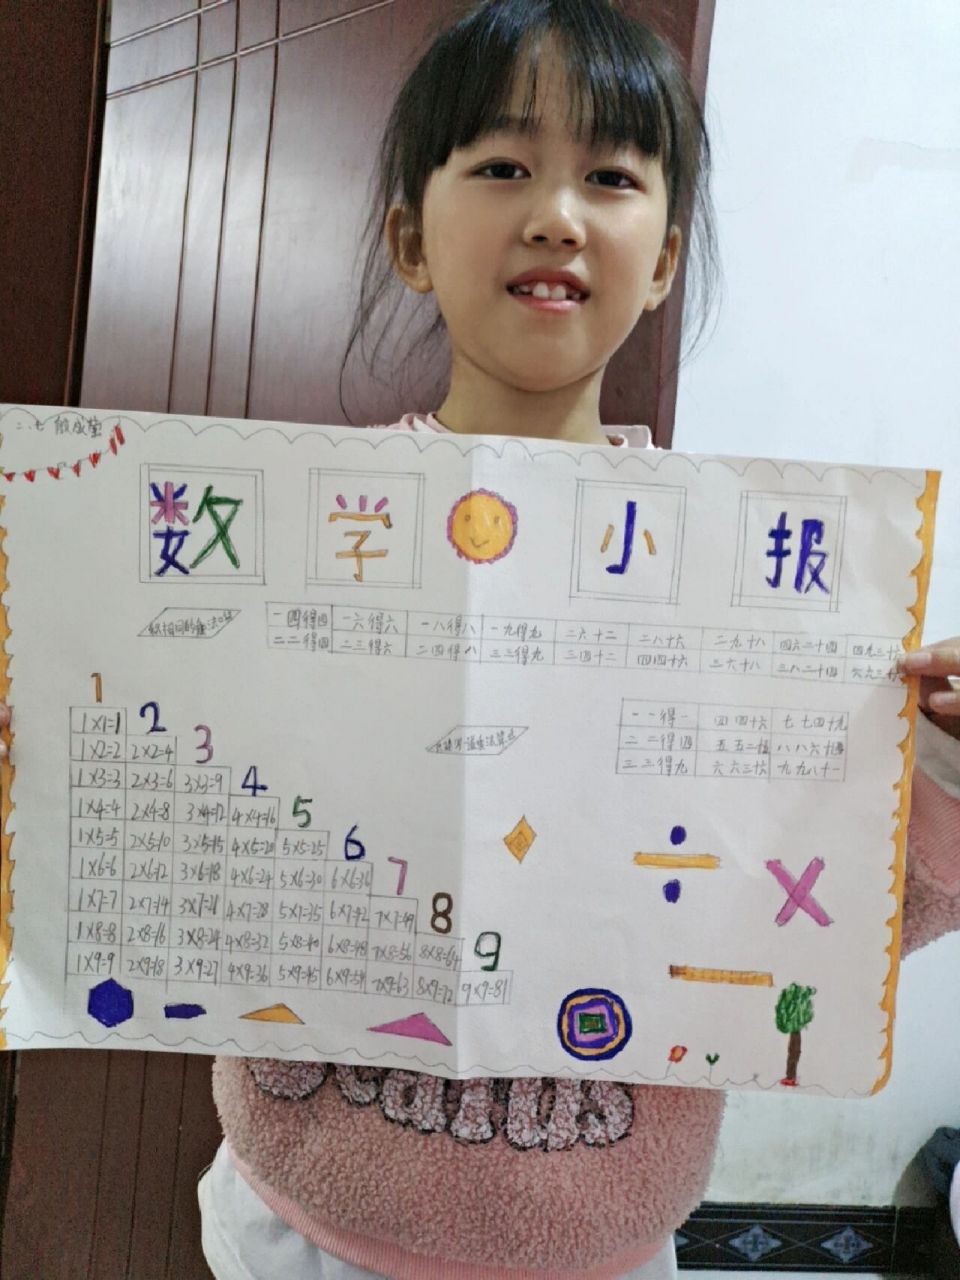 二、七 殷成莹
数学小报
积相同的乘法口诀
一四得四 一六得六 一八得八 一九得九 二六十二 二八十六 二九十八 四六二十四 四九三十六
二二得四 二三得六 二四得八 三三得九 三四十二 四四十六 三六十八 三八二十四 六六三十六
1
1×1=1 2
1×2=2 2×2=4 3
1×3=3 2×3=6 3×3=9 4
1×4=4 2×4=8 3×4=12 4×4=16 5
1×5=5 2×5=10 3×5=15 4×5=20 5×5=25 6
1×6=6 2×6=12 3×6=18 4×6=24 5×6=30 6×6=36 7
1×7=7 2×7=14 3×7=21 4×7=28 5×7=35 6×7=42 7×7=49 8
1×8=8 2×8=16 3×8=24 4×8=32 5×8=40 6×8=48 7×8=56 8×8=64 9
1×9=9 2×9=18 3×9=27 4×9=36 5×9=45 6×9=54 7×9=63 8×9=72 9×9=81
一一得一 四四十六 七七四十九
二二得四 五五二十五 八八六十四
三三得九 六六三十六 九九八十一
÷ ×
−